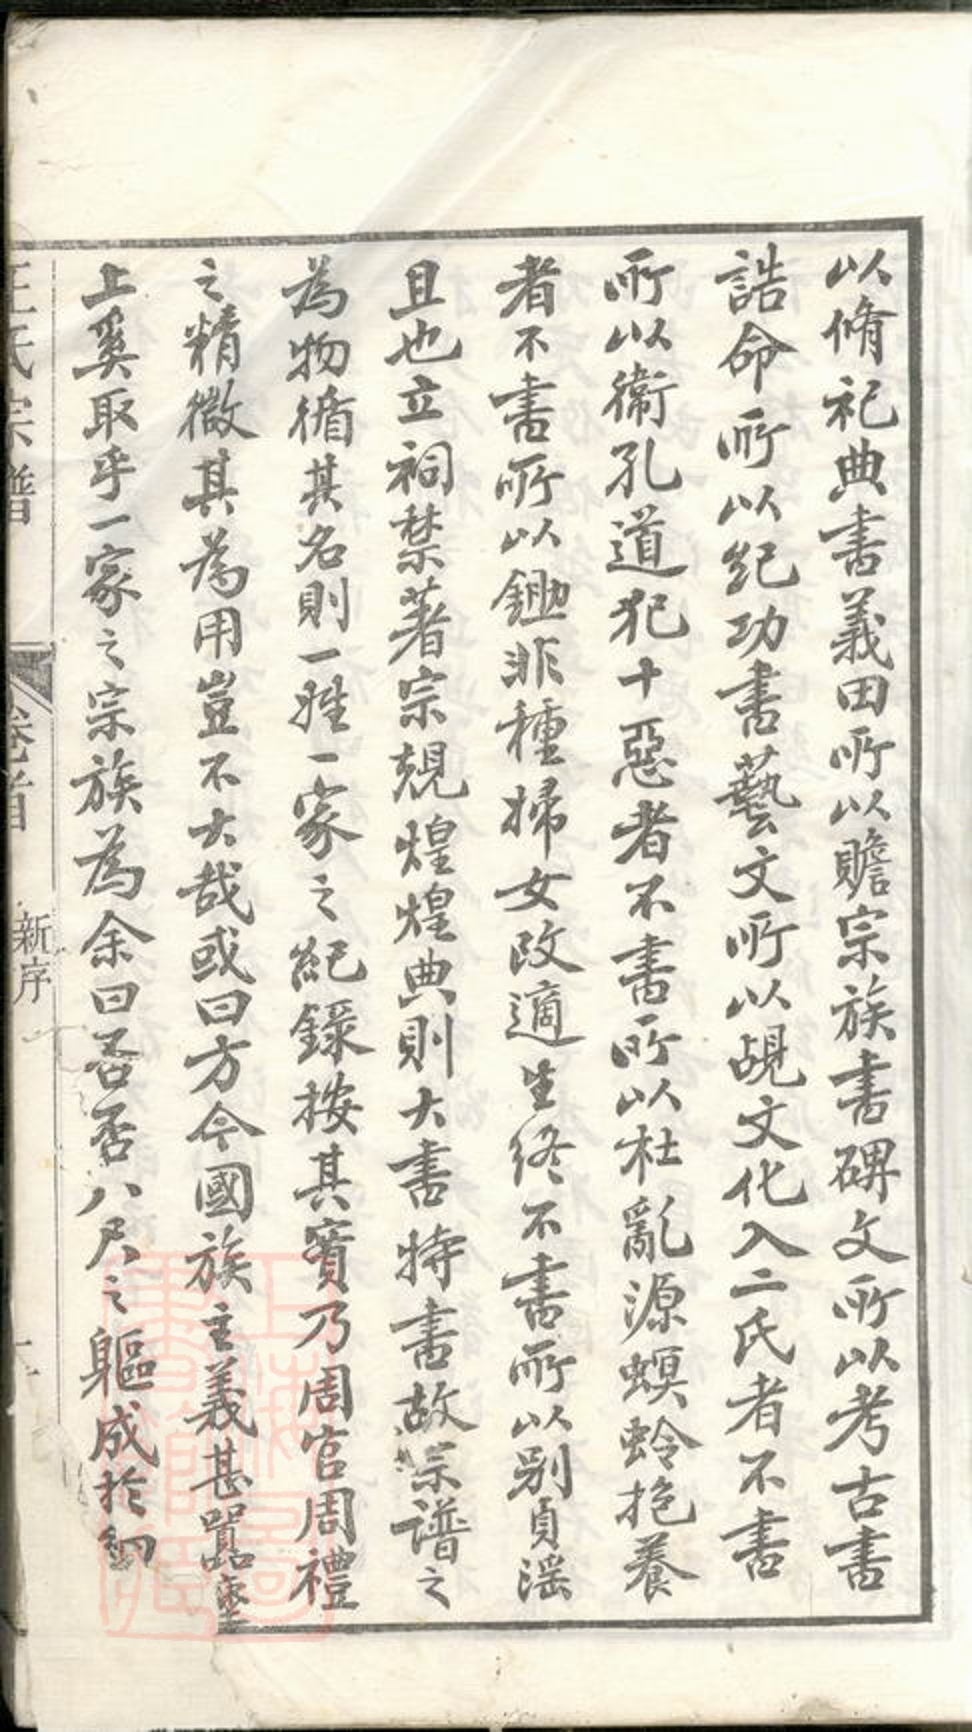 以脩祀典書義田所以贍宗族書碑文所以考古書
誥命所以紀功書藝文所以覘文化入二氏者不書
所以衞孔道犯十惡者不書所以杜亂源螟蛉抱養
者不書所以鋤非種掃女改適生終不書所以別貞淫
且也立祠禁著宗規煌煌典則大書特書故宗譜之
為物循其名則一姓一家之紀錄按其實乃周官周禮
之精微其為用豈不大哉或曰方今國族主義甚囂塵
上奚取乎一家之宗族為余曰否否八尺之軀成於細
王氏宗譜 卷首 新序